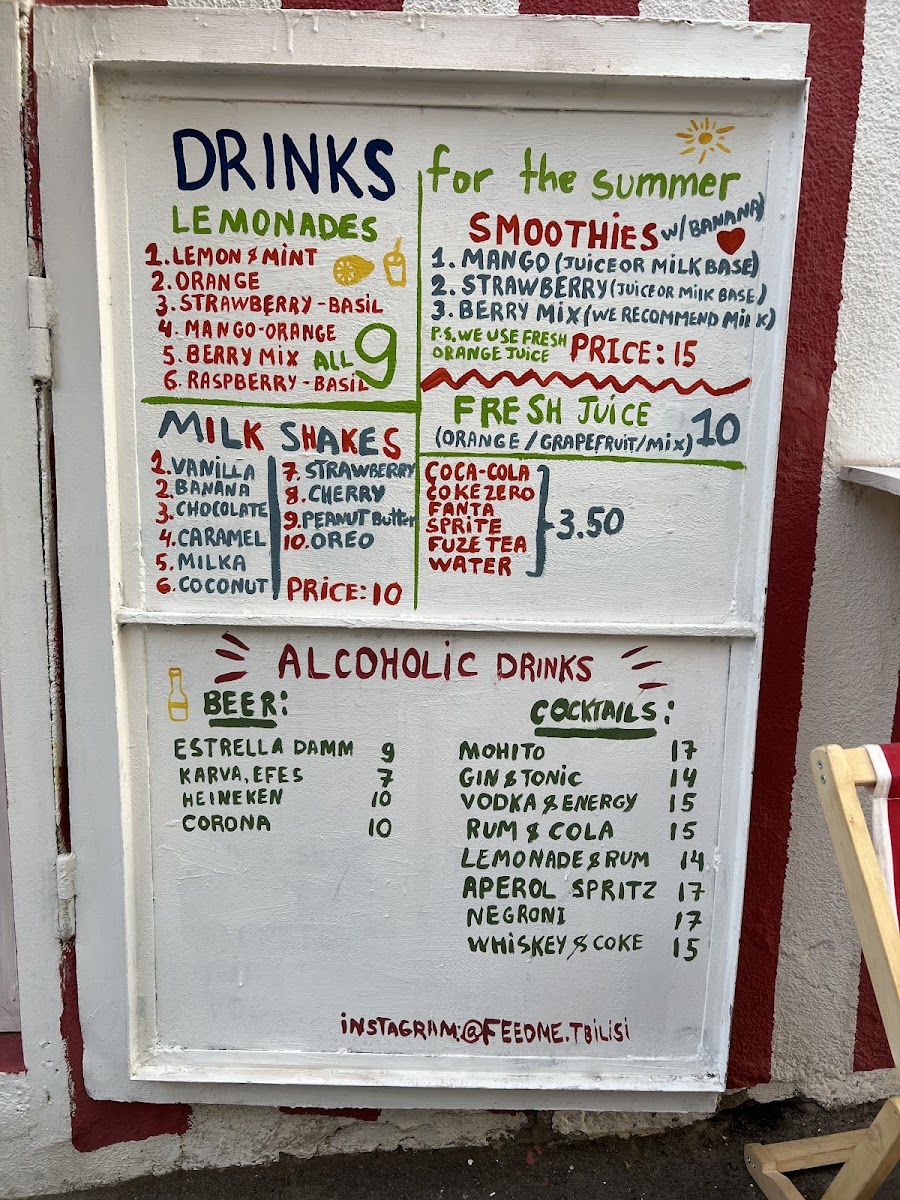 DRINKS for the summer
LEMONADES
1. LEMON & MINT
2. ORANGE
3. STRAWBERRY - BASIL
4. MANGO-ORANGE
5. BERRY MIX
6. RASPBERRY - BASIL
ALL 9
SMOOTHIES W/BANANA)
1. MANGO (JUICE OR MILK BASE)
2. STRAWBERRY (JUICE OR MILK BASE)
3. BERRY MIX (WE RECOMMEND MILK)
P.S. WE USE FRESH
ORANGE JUICE
PRICE: 15
FRESH JUICE
(ORANGE / GRAPEFRUIT/MIX) 10
MILK SHAKES
1. VANILLA
2. BANANA
3. CHOCOLATE
4. CARAMEL
5. MILKA
6. COCONUT
7. STRAWBERRY
8. CHERRY
9. PEANUT Butter
10. OREO
PRICE: 10
COCA-COLA
COKE ZERO
FANTA
SPRITE
FUZE TEA
WATER
3.50
ALCOHOLIC DRINKS
BEER:
ESTRELLA DAMM 9
KARVA, EFES 7
HEINEKEN 10
CORONA 10
COCKTAILS:
MOHITO 17
GIN & TONIC 14
VODKA & ENERGY 15
RUM & COLA 15
LEMONADE & RUM 14
APEROL SPRITZ 17
NEGRONI 17
WHISKEY & COKE 15
INSTAGRAM:@FEEDME.TBILISI